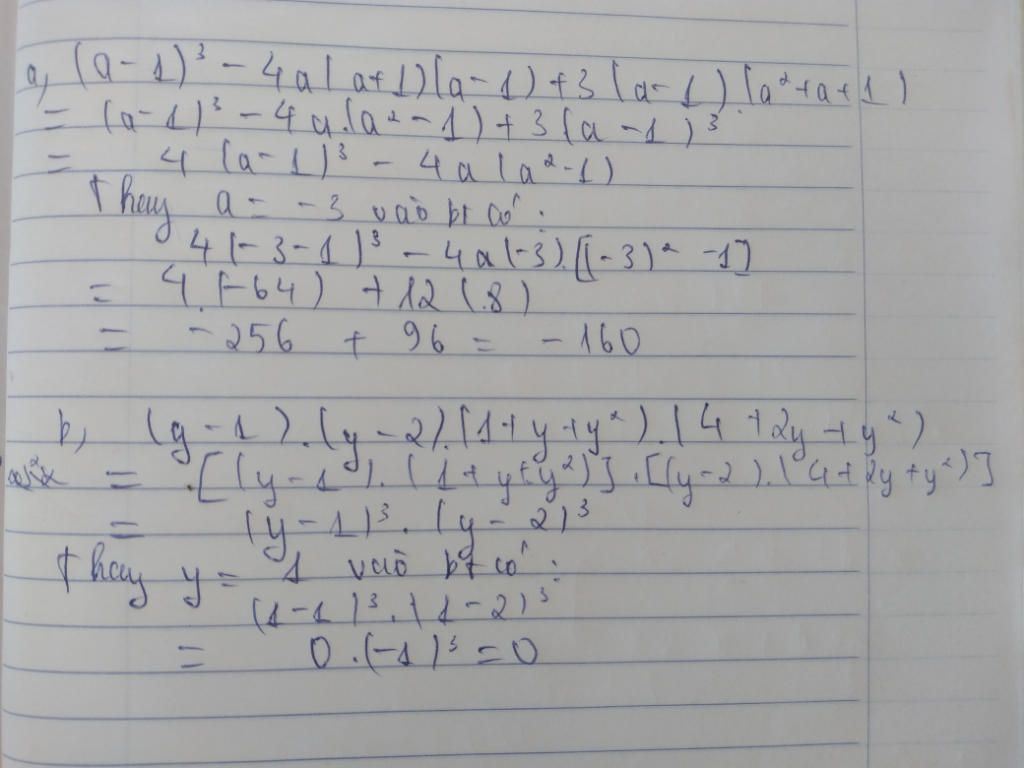 a, (a-1)³ - 4a(a+1)(a-1) + 3(a-1).(a²+a+1)
= (a-1)³ - 4a.(a²-1) + 3(a-1)³
= 4(a-1)³ - 4a(a²-1)
Thay a = -3 vào bt có:
4(-3-1)³ - 4a(-3).[(-3)² -1]
= 4.(-64) + 12(.8)
= -256 + 96 = -160
b, (y-1).(y-2).(1+y+y²).(4+2y+y²)
= .[(y-1).(1+y+y²)].[(y-2).(4+2y+y²)]
= (y-1)³.(y-2)³
Thay y = 1 vào bt có:
(1-1)³.(1-2)³
= 0.(-1)³ = 0